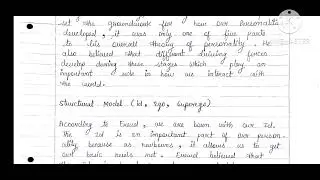 set the groundwork for how our personality
developed, it was only one of five parts
to his overall theory of personality. He
also believed that different driving forces
develop during these stages which play an
important role in how we interact with
the world.
Structural Model (id, ego, superego)
According to Freud, we are born with our id.
The id is an important part of our person-
ality because as newborns, it allows us to get
our basic needs met. Freud believed that